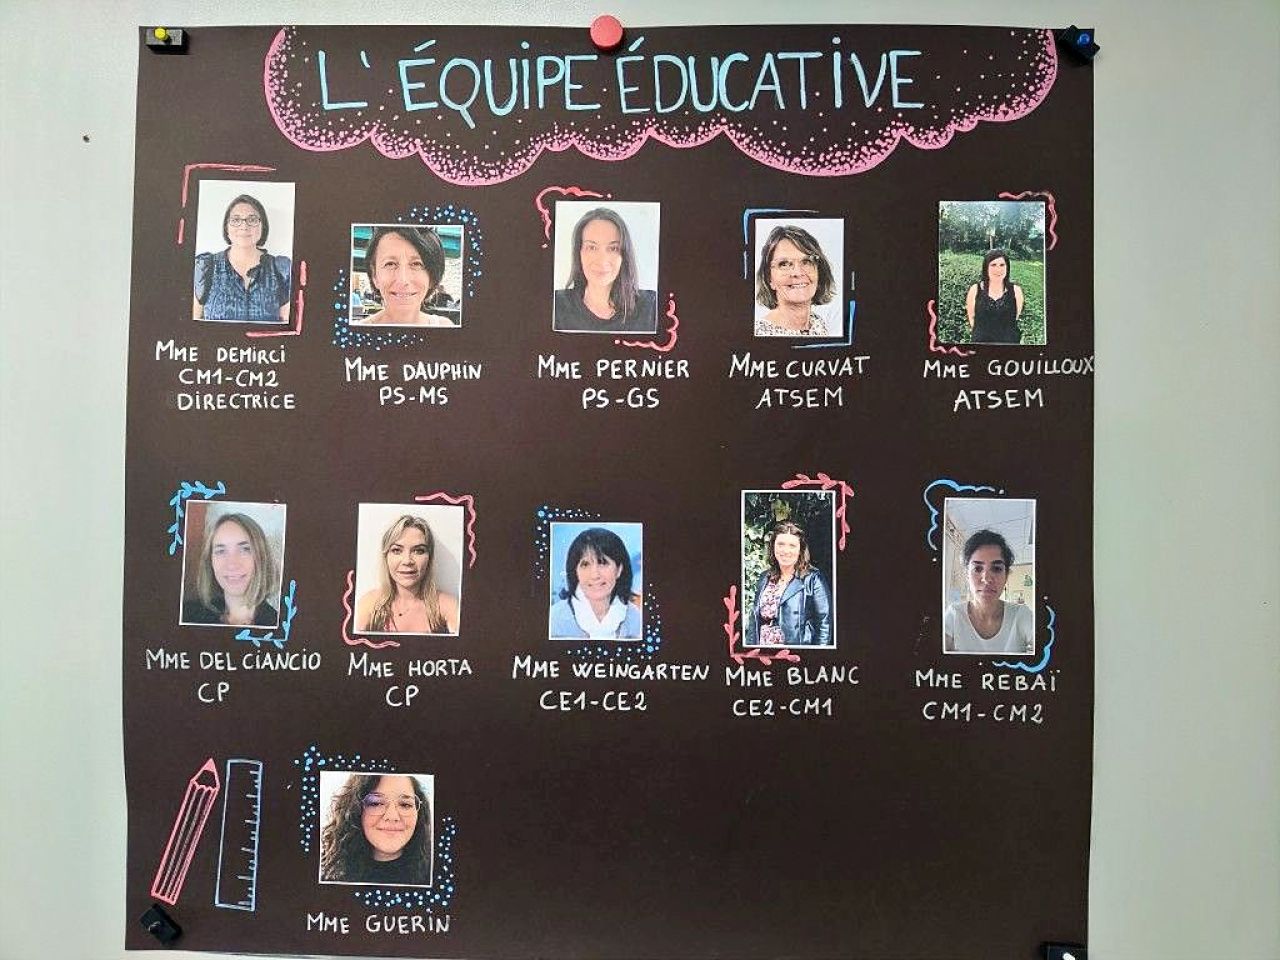 L'ÉQUIPE ÉDUCATIVE
MME DEMIRCI
CM1-CM2
DIRECTRICE
MME DAUPHIN
PS-MS
MME PERNIER
PS-GS
MME CURVAT
ATSEM
MME GOUILLOUX
ATSEM
MME DEL CIANCIO
CP
MME HORTA
CP
MME WEINGARTEN
CE1-CE2
MME BLANC
CE2-CM1
MME REBAÏ
CM1-CM2
MME GUERIN